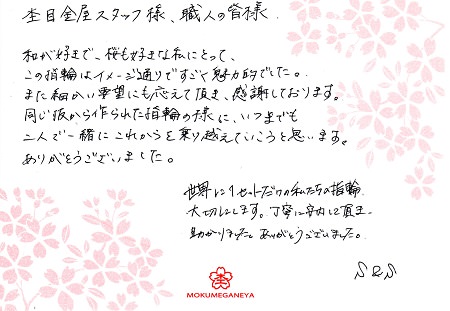 杢目金屋スタッフ様、職人の皆様
和が好きで、桜も好きな私にとって、
この指輪はイメージ通りですごく魅力的でした。
また細かい要望にも応えて頂き、感謝しております。
同じ板から作られた指輪の様に、いつまでも
二人で一緒にこれからを乗り越えていこうと思います。
ありがとうございました。
世界に1セットだけの私たちの指輪
大切にします。丁寧に対応して頂き
助かりました。ありがとうございました。
S & S
MOKUMEGANEYA